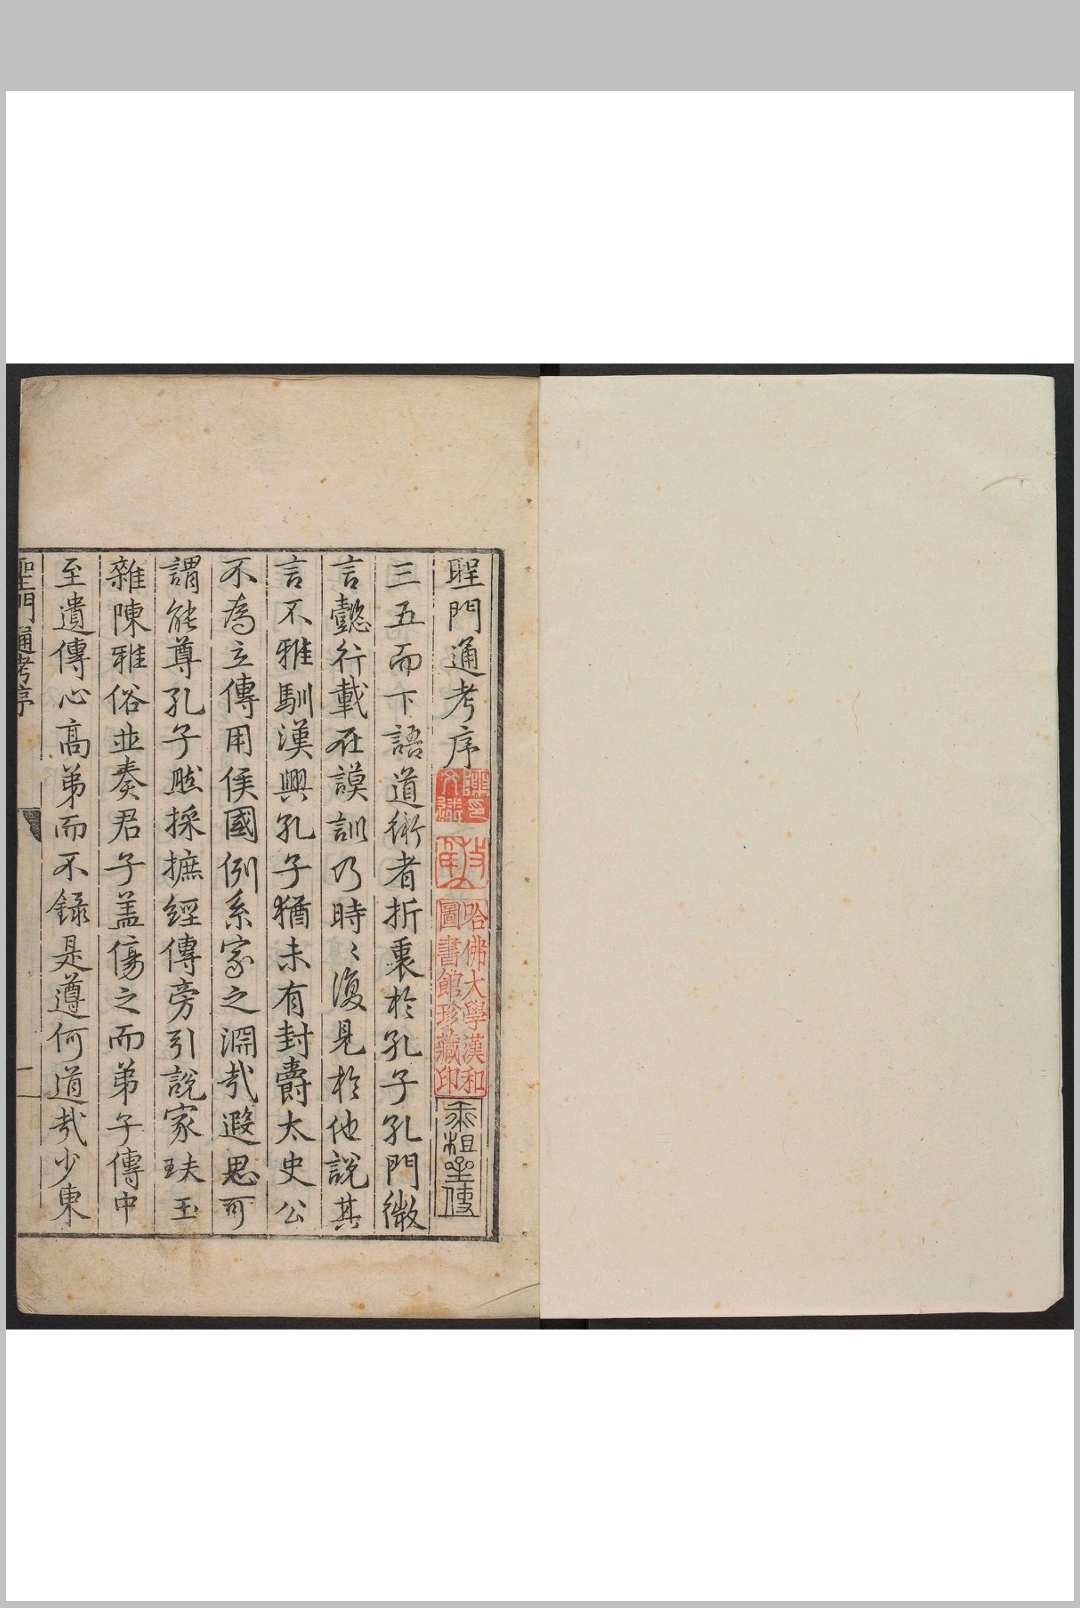 聖門通考序
哈佛大學漢和
圖書館珍藏印
三五而下語道術者折衷於孔子孔門微
言懿行載在謨訓乃時〻復見於他說其
言不雅馴漢興孔子猶未有封爵太史公
不為立傳用侯國例系家之淵哉遐思可
謂能尊孔子然採摭經傳旁引說家玞玉
雜陳雅俗並奏君子盖傷之而弟子傳中
至遺傳心高弟而不錄是遵何道哉少東
聖門通考序
一